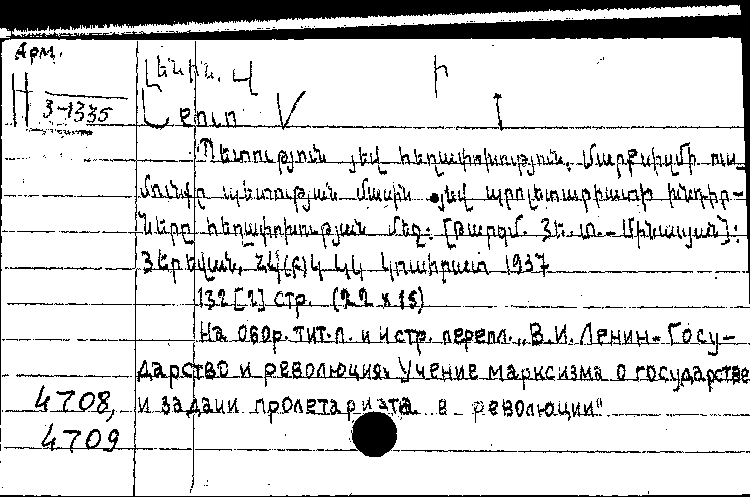 Арм.
Լենին. Վ Ի
Н 3-1335
Lenin V I
Պետություն յեվ հեղափոխություն. Մարքսիզմի ուս-
մունքը պետության մասին յեվ պրոլետարիատի խնդիր-
ները հեղափոխության մեջ: [Թարգմ. Յե. Տ. – Մինասյան]:
Յերեվան, ՀԿ(բ)Կ ԿԿ Կուսհրատ 1937
132 [2] стр. (22 x 15)
На обор. тит. л. и и стр. перепл. „В.И. Ленин. Госу-
дарство и революция. Учение марксизма о государстве
и задачи пролетариата в революции"
4708,
4709